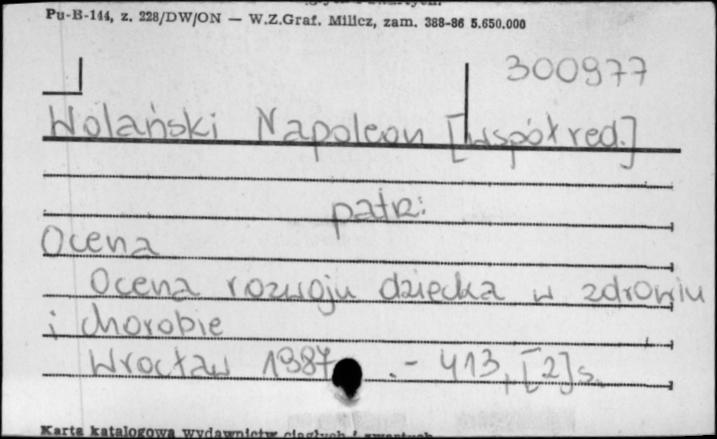 Pu-B-144, z. 228/DW/ON — W.Z.Graf. Milicz, zam. 388-86 5.650.000
300977
Wolański Napoleon [współred.]
patrz:
Ocena
Ocena rozwoju dziecka w zdrowiu
i chorobie
Wrocław 1987 .- 413, [2] s.
Karta katalogowa wydawnictw ciągłych i zwartych